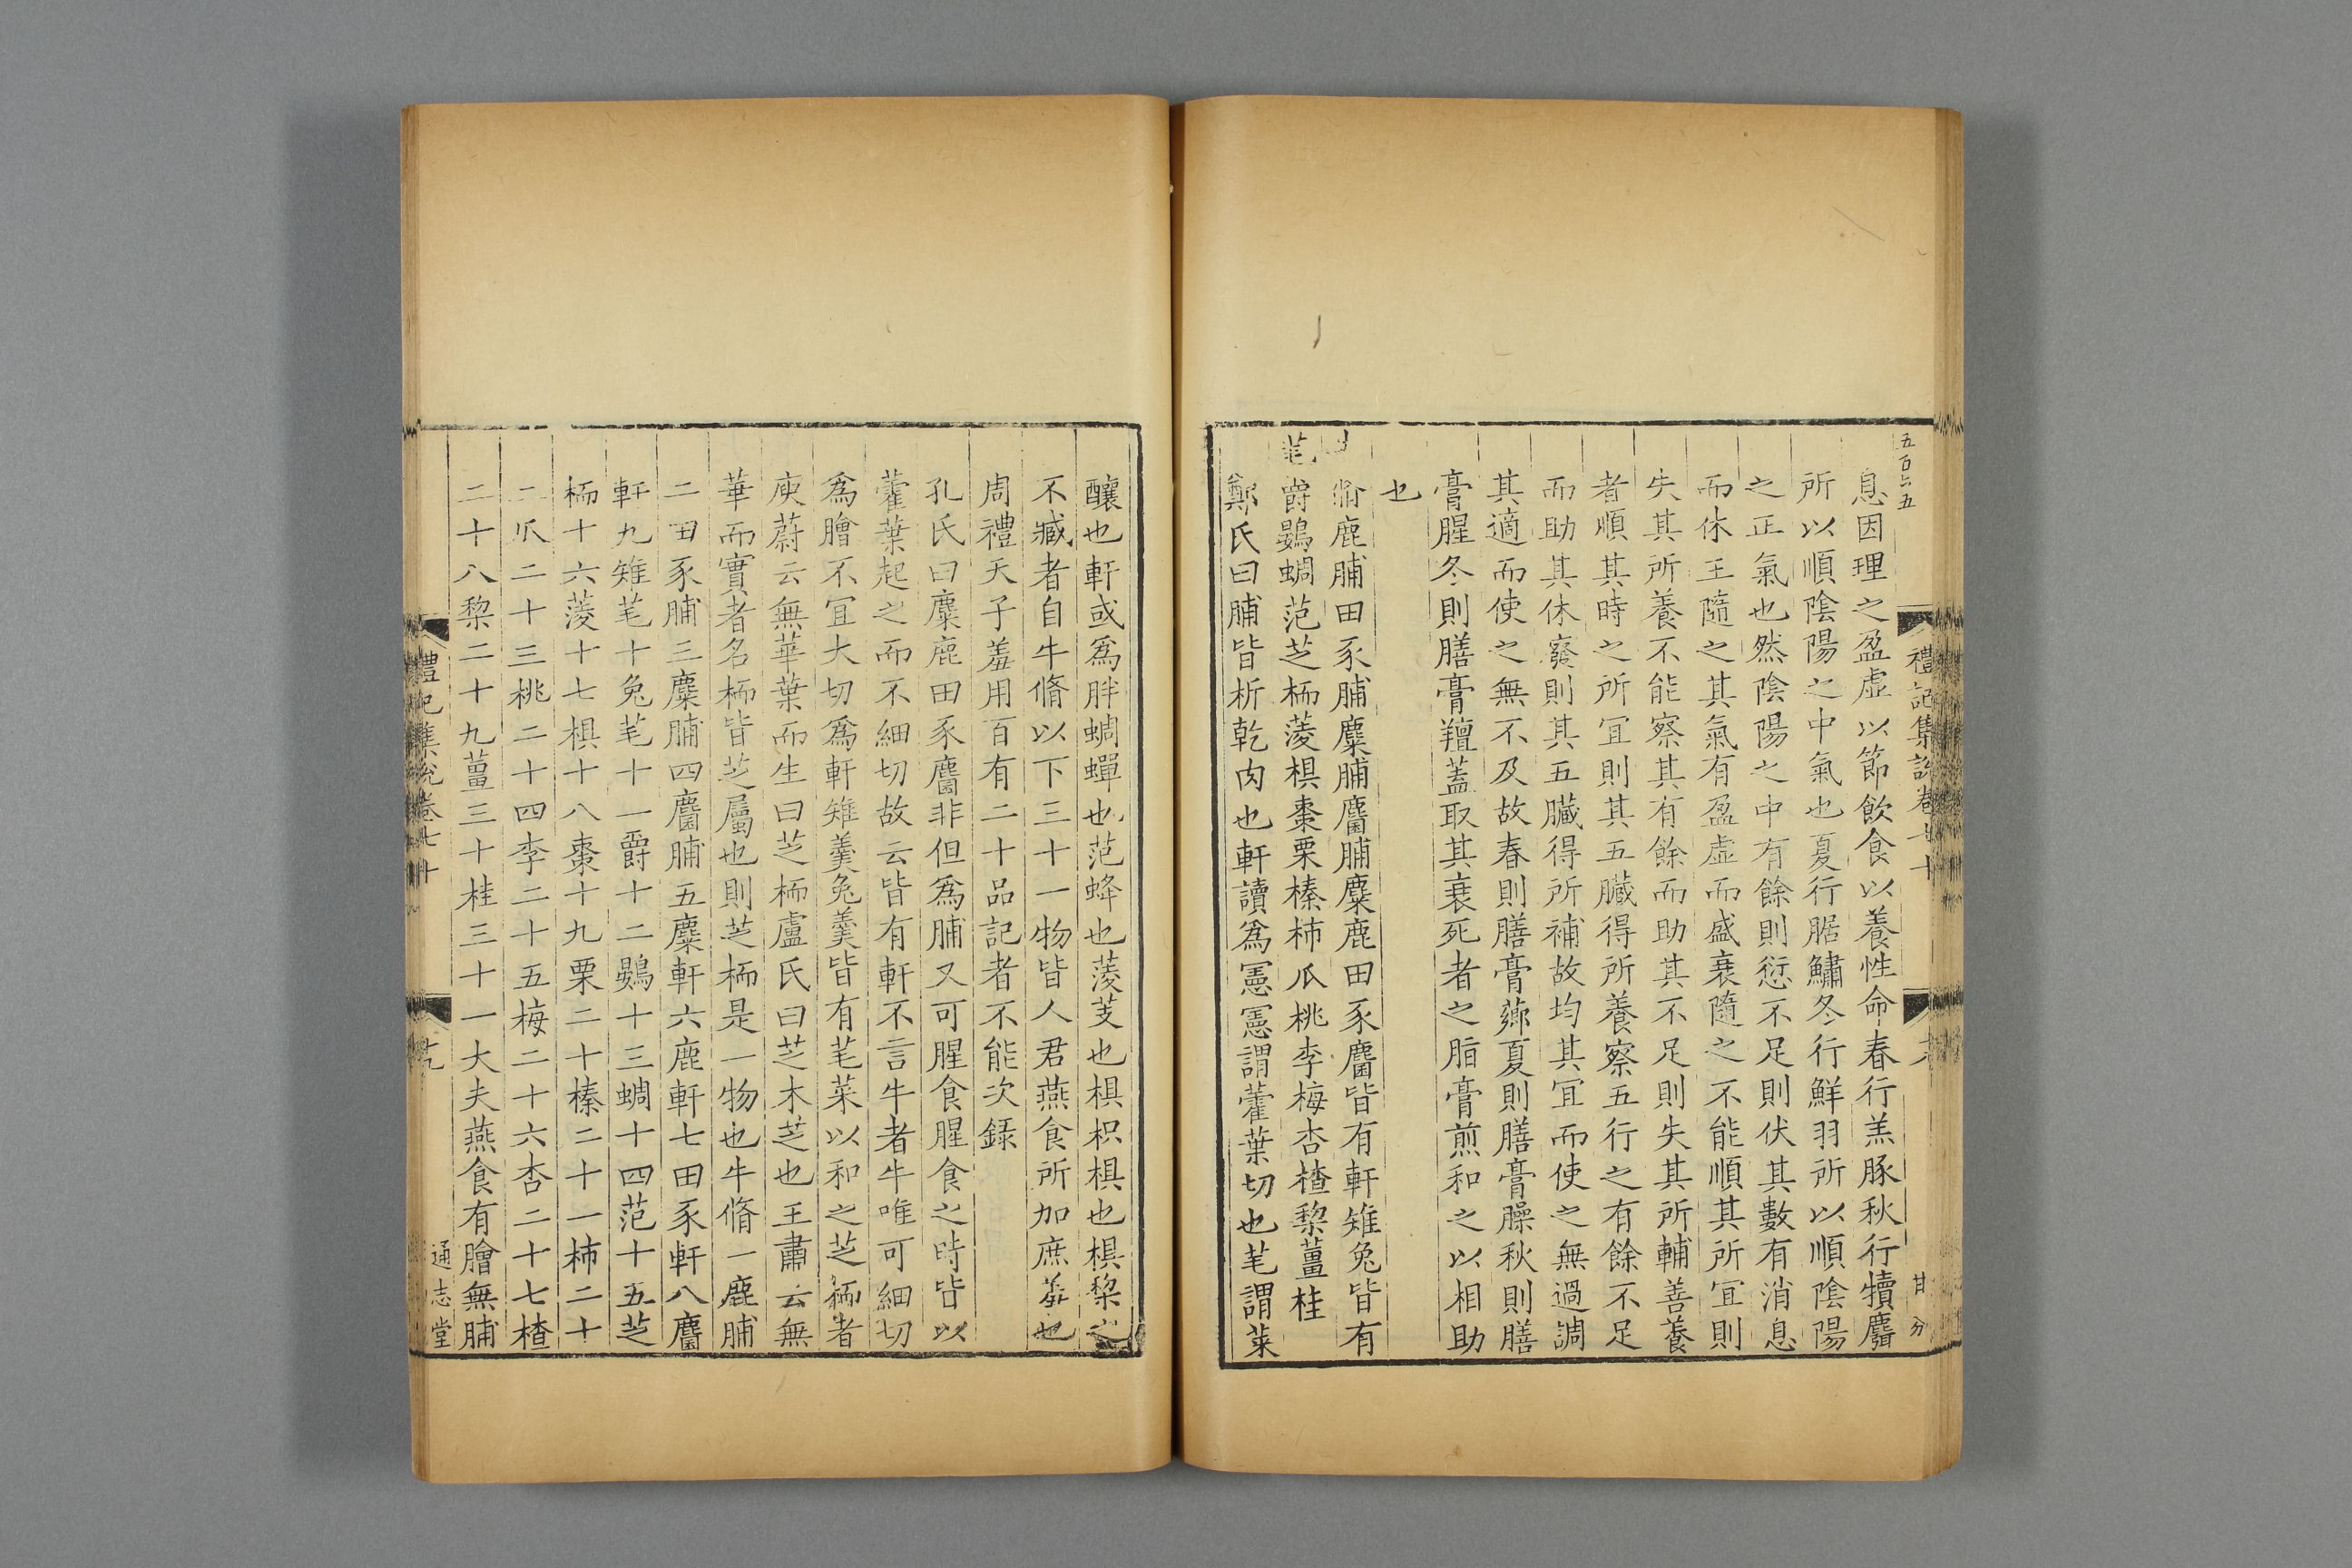 五百六五
禮記集說卷七十
息因理之盈虛以節飲食以養性命春行羔豚秋行犢麛
所以順陰陽之中氣也夏行腒鱐冬行鮮羽所以順陰陽
之正氣也然陰陽之中有餘則愆不足則伏其數有消息
而休王隨之其氣有盈虛而盛衰隨之不能順其所宜則
失其所養不能察其有餘而助其不足則失其所輔善養
者順其時之所宜則其五臟得所養察五行之有餘不足
而助其休廢則其五臟得所補故均其宜而使之無過調
其適而使之無不及故春則膳膏薌夏則膳膏臊秋則膳
膏腥冬則膳膏羶蓋取其衰死者之脂膏煎和之以相助
也
脩鹿脯田豕脯麋脯麕脯麋鹿田豕麕皆有軒雉兔皆有
芼爵鷃蜩范芝栭蔆椇棗栗榛柿瓜桃李梅杏楂棃薑桂
鄭氏曰脯皆析乾肉也軒讀爲憲憲謂藿葉切也芼謂菜
釀也軒或爲胖蜩蟬也范蜂也蔆芰也椇枳椇也椇棃之
不臧者自牛脩以下三十一物皆人君燕食所加庶羞也
周禮天子羞用百有二十品記者不能次錄
孔氏曰麋鹿田豕麕非但爲脯又可腥食腥食之時皆以
藿葉起之而不細切故云皆有軒不言牛者牛唯可細切
爲膾不宜大切爲軒雉羹兔羹皆有芼菜以和之芝栭者
庾蔚云無華葉而生曰芝栭盧氏曰芝木芝也王肅云無
華而實者名栭皆芝屬也則芝栭是一物也牛脩一鹿脯
二田豕脯三麋脯四麕脯五麋軒六鹿軒七田豕軒八麕
軒九雉芼十兔芼十一爵十二鷃十三蜩十四范十五芝
栭十六蔆十七椇十八棗十九栗二十榛二十一柿二十
二瓜二十三桃二十四李二十五梅二十六杏二十七楂
二十八棃二十九薑三十桂三十一大夫燕食有膾無脯
禮記集說卷七十
通志堂